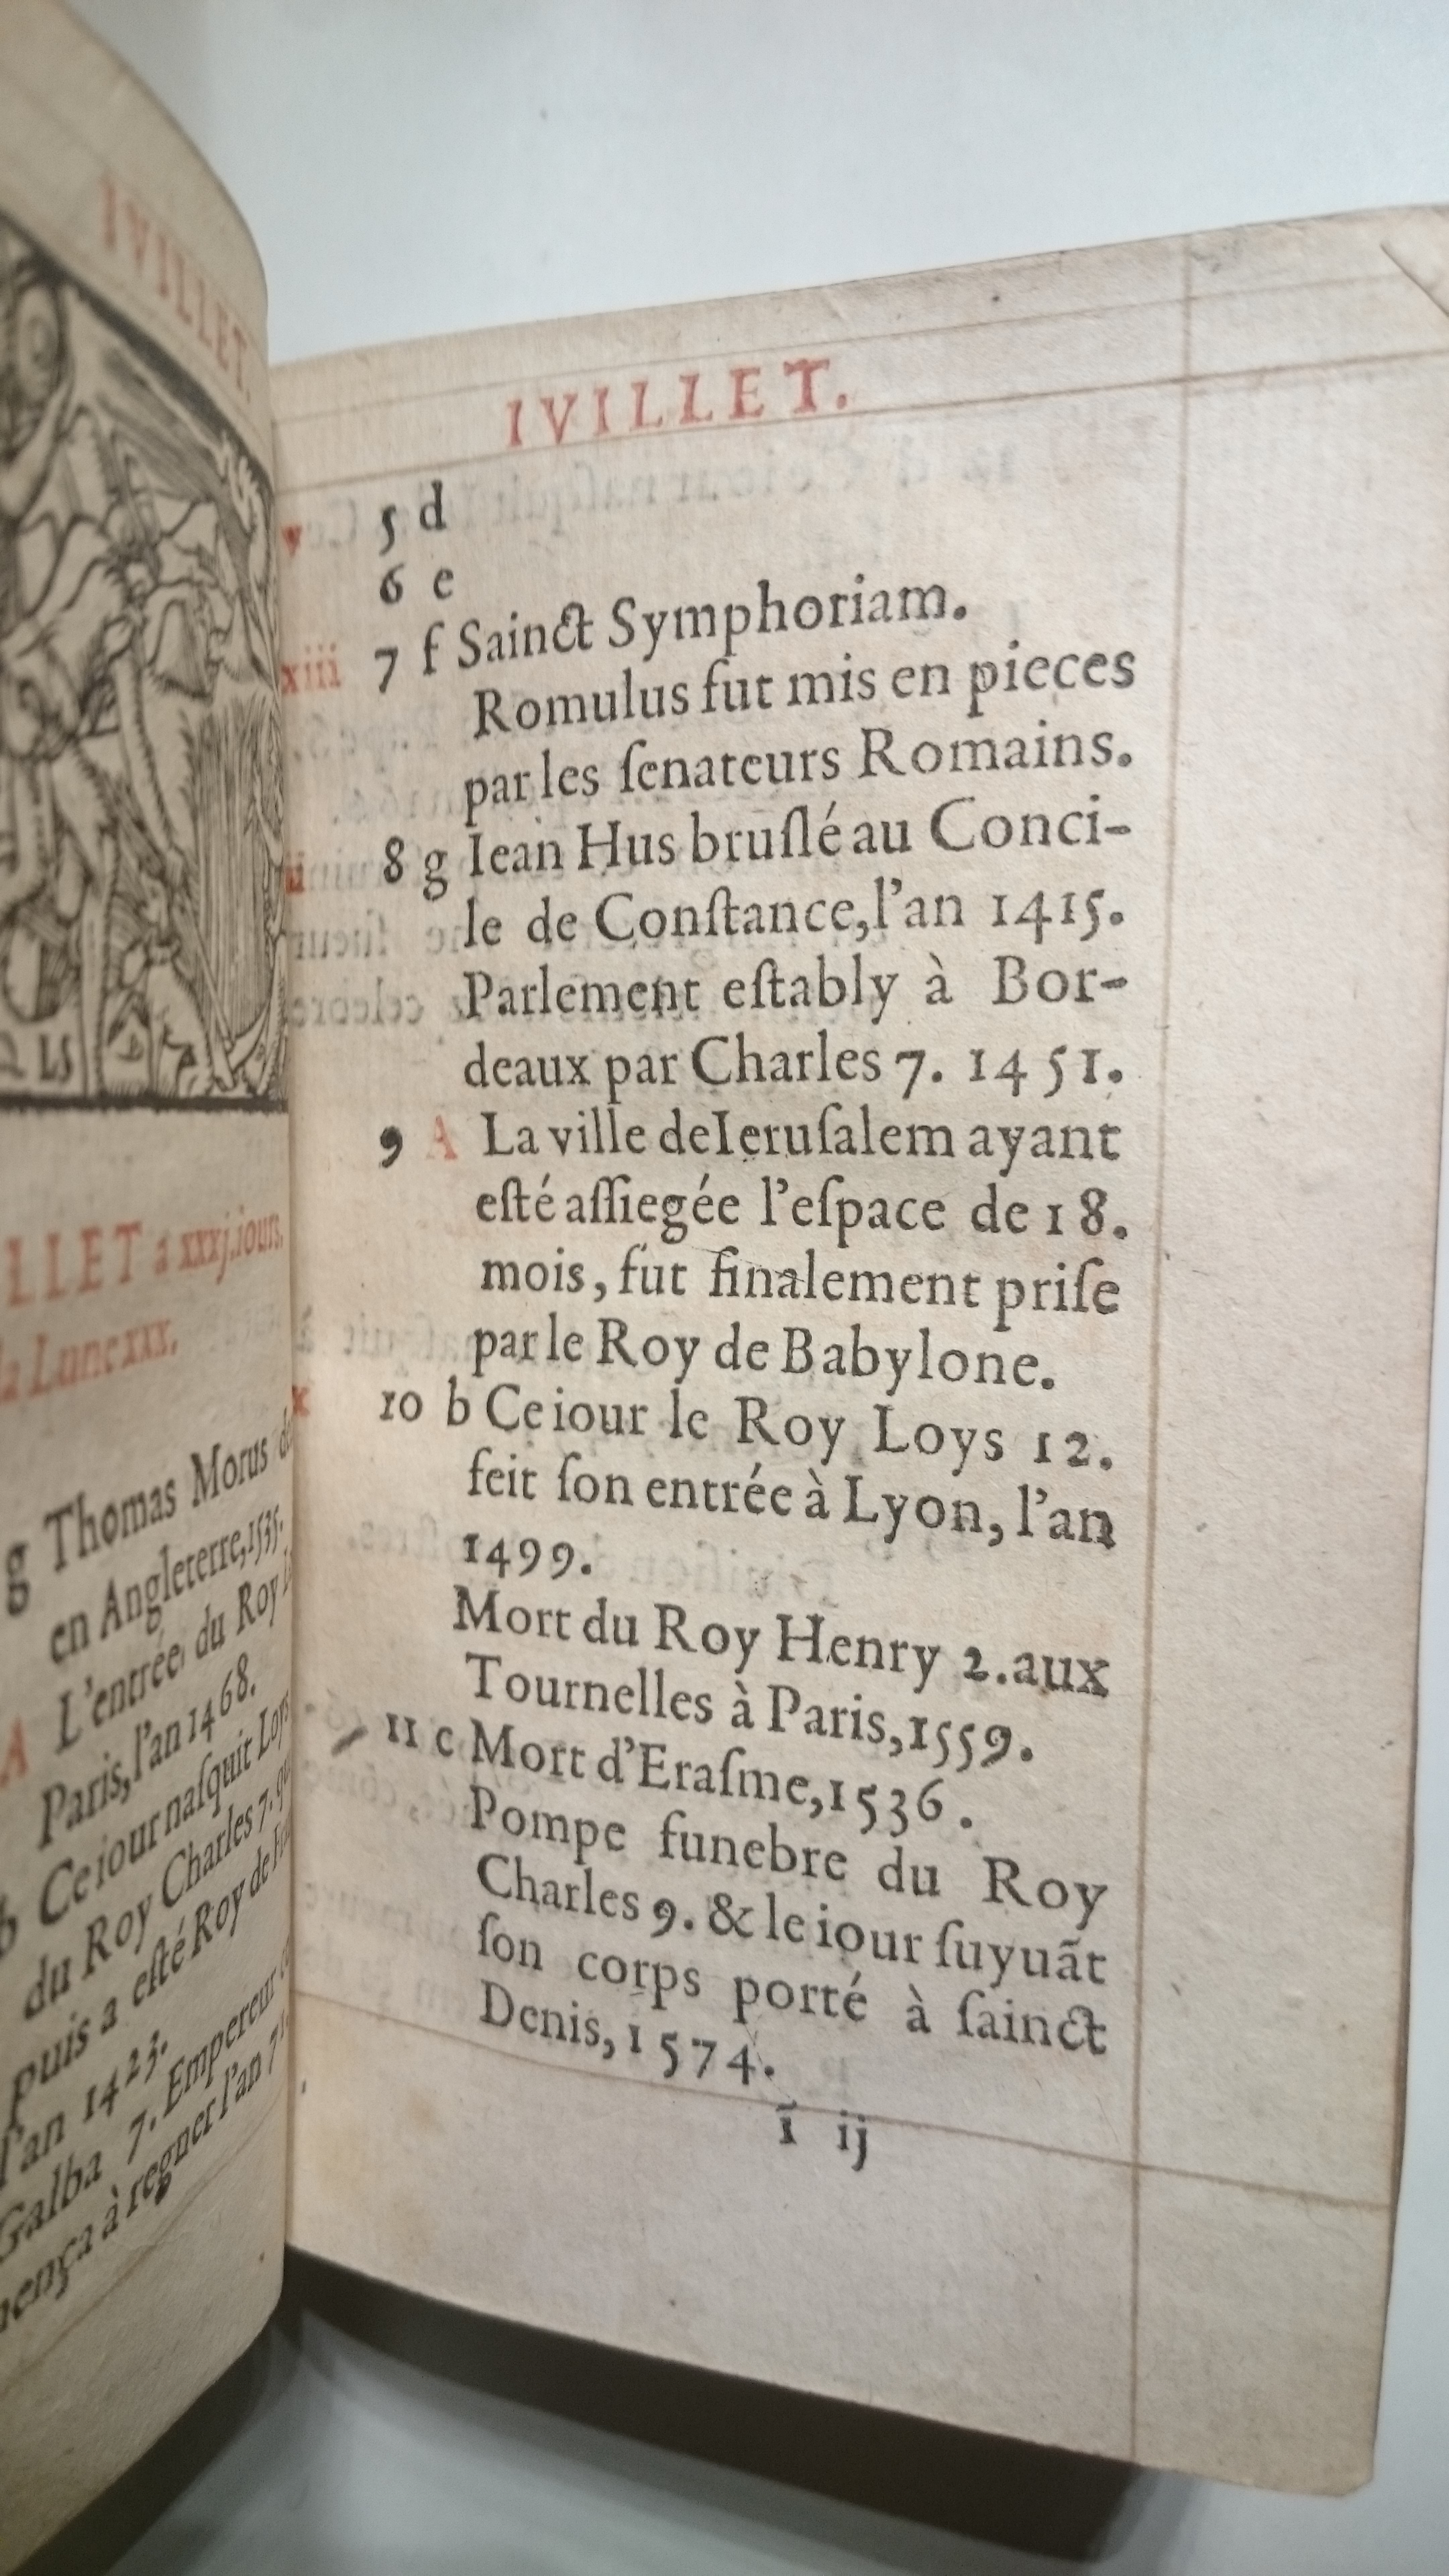 IVILLET.
LLET a xxxj.iours,
la Lune xxx.
g Thomas Morus
en Angleterre,1535.
A L'entrée du Roy
Paris,l'an 1468.
b Ce iour naſquit Loys
du Roy Charles 7. qu
puis a eſté Roy de
l'an 1423.
Galba 7. Empereur
mença à regner l'an 71
IVILLET.
v 5 d
6 e
xiii 7 f Sainct Symphoriam.
Romulus fut mis en pieces
par les ſenateurs Romains.
ii 8 g Iean Hus bruſlé au Conci-
le de Conſtance,l'an 1415.
Parlement eſtably à Bor-
deaux par Charles 7. 1451.
9 A La ville de Ieruſalem ayant
eſté aſſiegée l'eſpace de 18.
mois, fut finalement priſe
par le Roy de Babylone.
x 10 b Ce iour le Roy Loys 12.
feit ſon entrée à Lyon, l'an
1499.
Mort du Roy Henry 2.aux
Tournelles à Paris,1559.
11 c Mort d'Eraſme,1536.
Pompe funebre du Roy
Charles 9. & le iour ſuyuãt
ſon corps porté à ſainct
Denis,1574.
ĩ ij